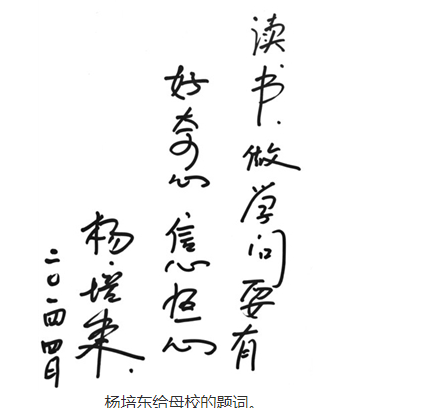 读书.做学问要有
好奇心 信心恒心
杨培东.
二〇一四 四月
杨培东给母校的题词。